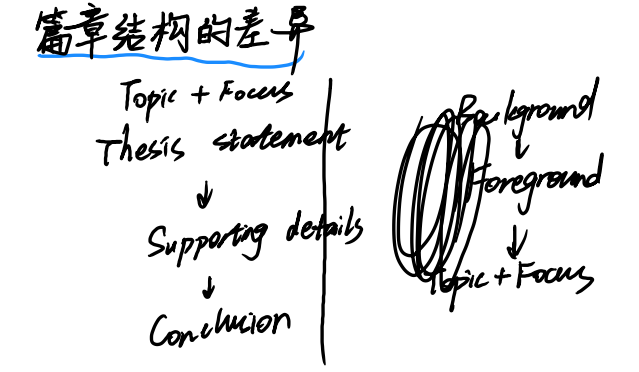 篇章结构的差异
Topic + Focus
Thesis statement
↓
Supporting details
↓
Conclusion
Background
↓
Foreground
↓
Topic + Focus